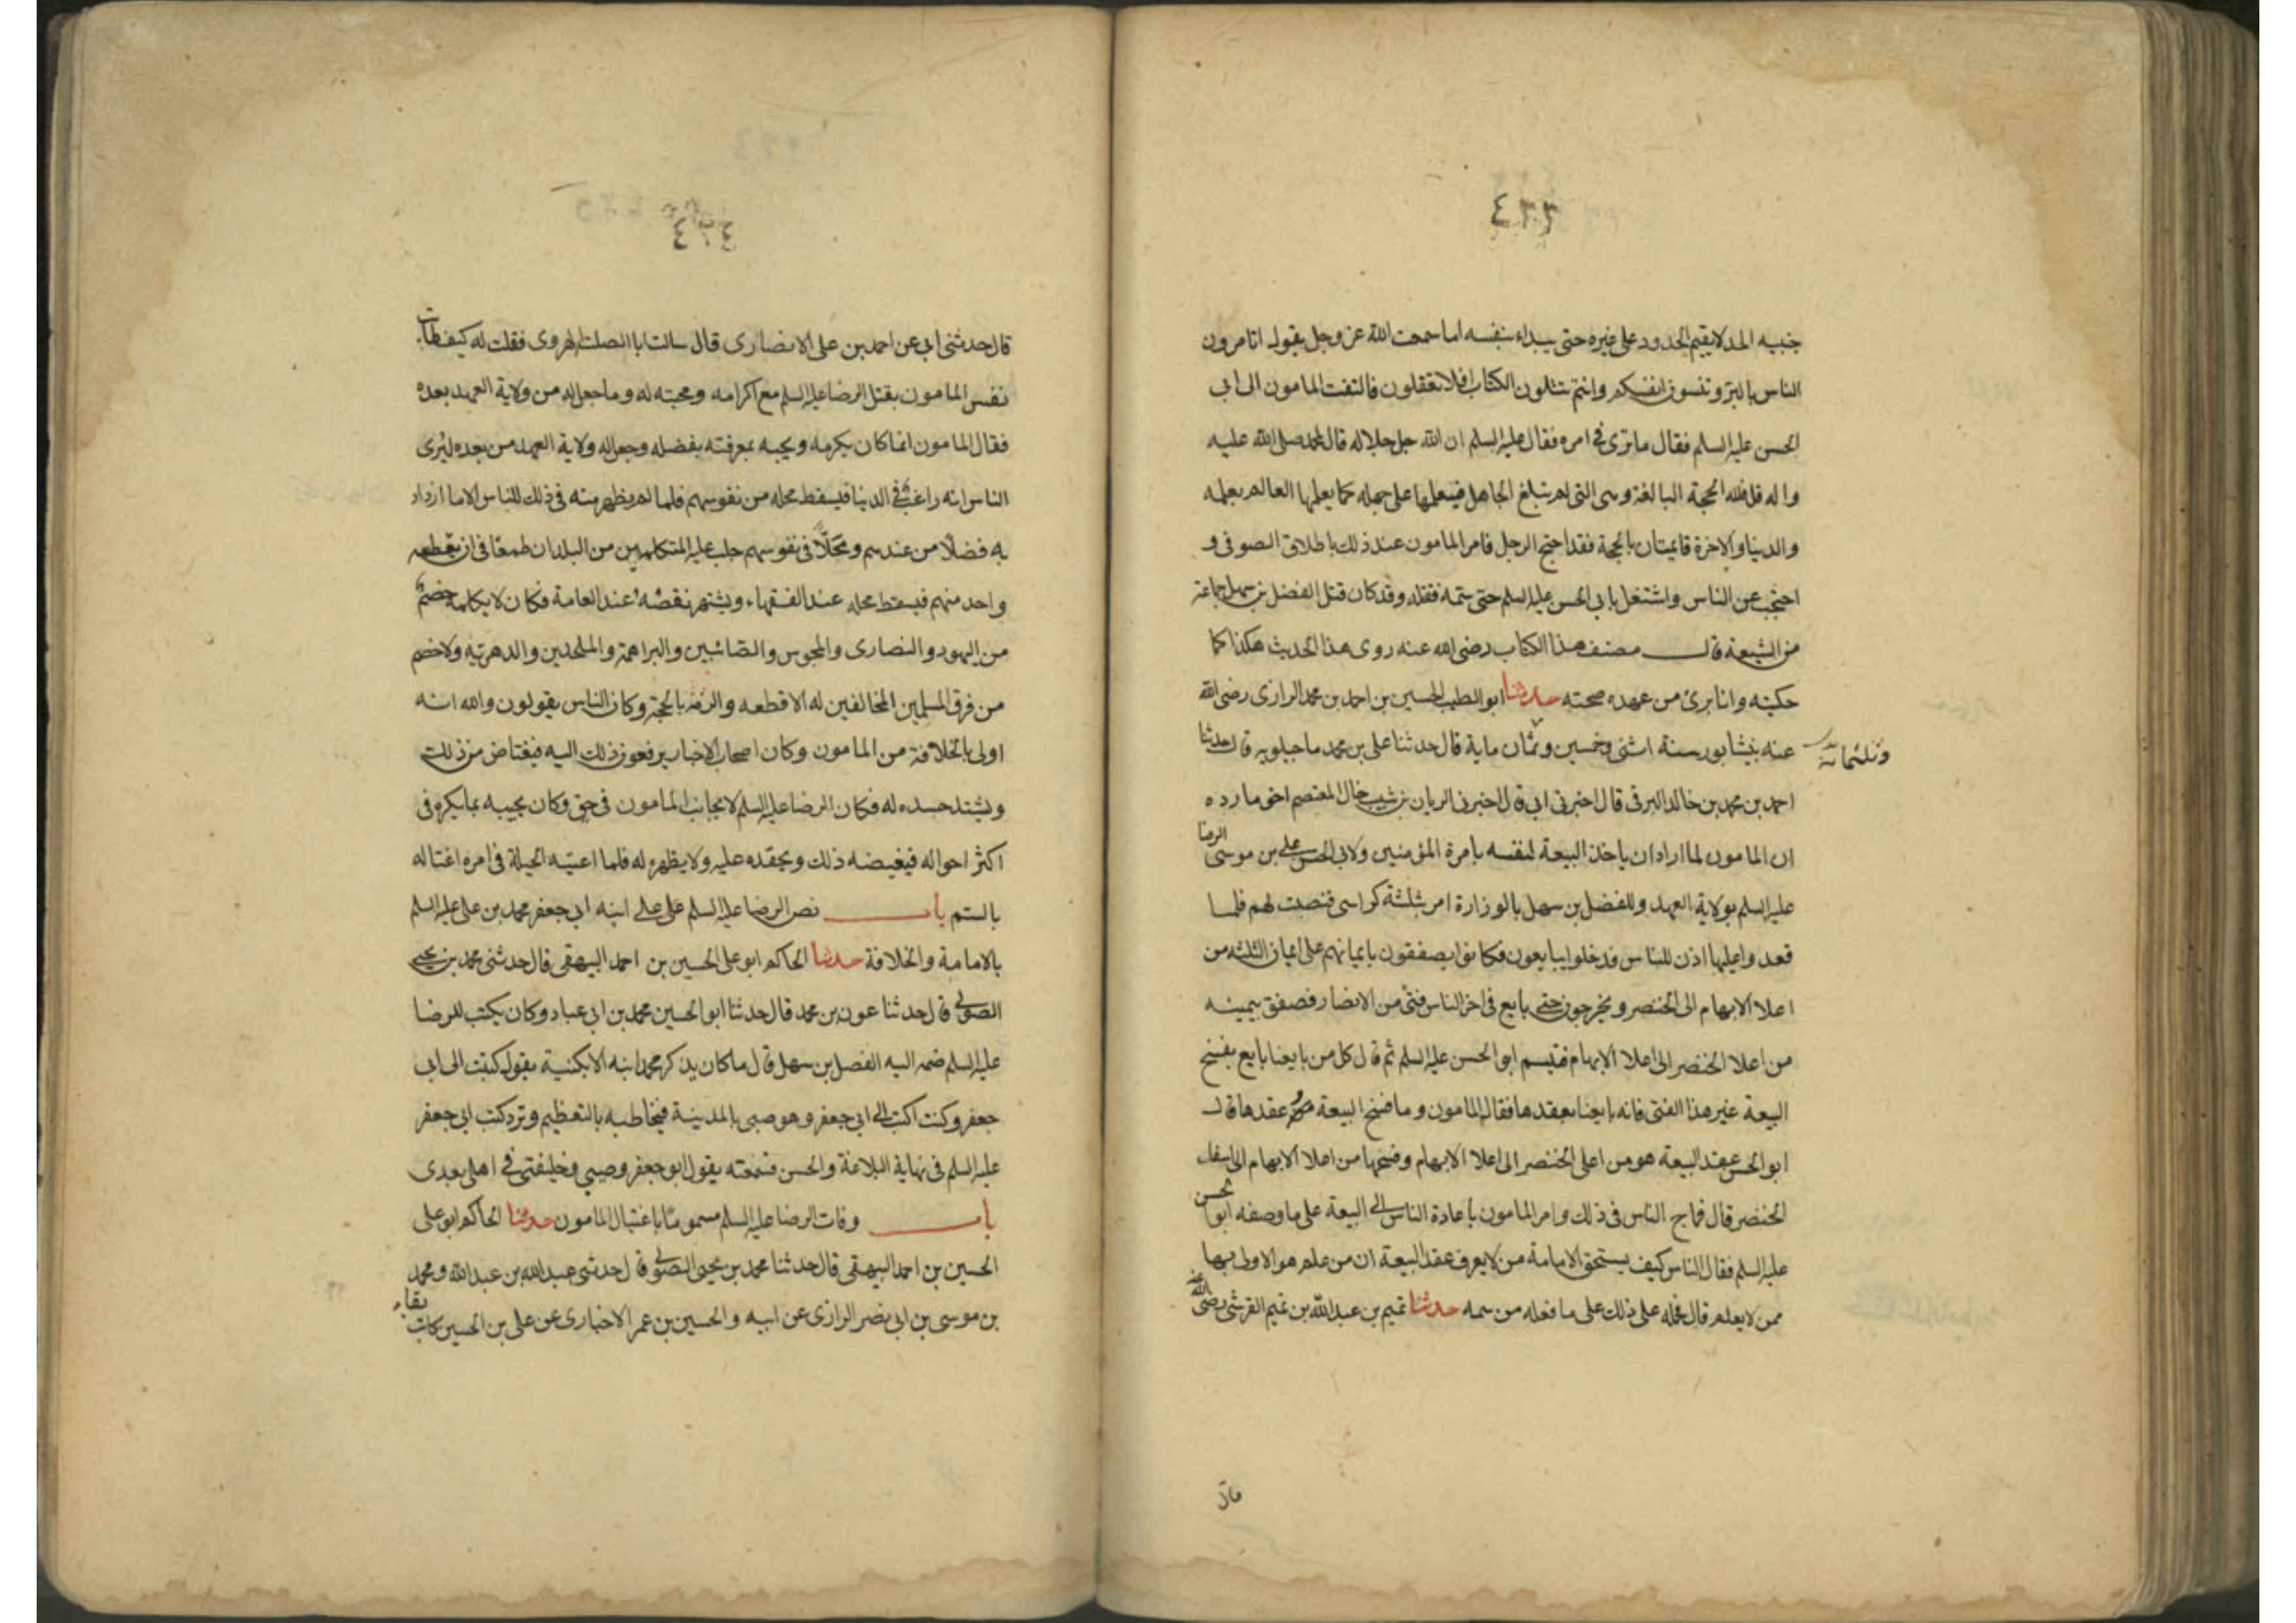 ٤٣٣
جنبيه الحد لا يقيم الحدود على غيره حتى يبداء بنفسه اما سمعت الله عز وجل يقول اتامرون
الناس بالبر وتنسون انفسكم وانتم تتلون الكتاب افلا تعقلون فالتفت المامون الى ابي
الحسن عليه السلم فقال ما ترى في امره فقال عليه السلم ان الله جل جلاله قال لمحمد صلى الله عليه
واله قل فلله الحجة البالغة وهي التي لم تبلغ الجاهل فيعلمها على جهله كما يعلمها العالم بعلمه
والدنيا والاخرة قايمتان بالحجة فقد احتج الرجل فامر المامون عند ذلك باطلاق الصوفي و
احتجب عن الناس واشتغل بابي الحسن عليه السلم حتى سمه فقتله وقد كان قتل الفضل بن سهل وجماعة
من الشيعة قال مصنف هذا الكتاب رضى الله عنه روى هذا الحديث هكذا كما
حكيته وانا برئ من عهده صحته حدثنا ابو الطيب الحسين بن احمد بن محمد الرازى رضى الله
عنه بنيشابور سنة اثنى وخمسين وثمان ماية قال حدثنا على بن محمد ماجيلويه قال حدثنا
وثلثماية
احمد بن محمد بن خالد البرقى قال اخبرنى ابى قال اخبرنى الريان بن شبيب خال المعتصم اخى مارده
ان المامون لما اراد ان ياخذ البيعة لنفسه بامرة المؤمنين ولابي الحسن على بن موسى الرضا
عليه السلم بولاية العهد وللفضل بن سهل بالوزارة امر بثلثة كراسى فنصبت لهم فلما
قعدوا عليها اذن للناس فدخلوا يبايعون فكانوا يصفقون بايمانهم على ايمان الثلثه من
اعلا الابهام الى الخنصر ويخرجون حتى بايع فى اخر الناس فتى من الانصار فصفق بيمينه
من اعلا الخنصر الى اعلا الابهام فتبسم ابو الحسن عليه السلم ثم قال كل من بايعنا بايع بفسخ
البيعة غير هذا الفتى فانه بايعنا بعقدها فقال المامون وما فسخ البيعة من عقدها قال
ابو الحسن عقد البيعة هو من اعلى الخنصر الى اعلا الابهام وفسخها من اعلا الابهام الى اسفل
الخنصر قال فماج الناس فى ذلك وامر المامون باعادة الناس الى البيعة على ما وصفه ابو الحسن
عليه السلم فقال الناس كيف يستحق الامامة من لا يعرف عقد البيعة ان من علم هو الاولى بها
ممن لا يعلم قال فحمله على ذلك على ما فعله من سمه حدثنا تميم بن عبد الله بن تميم القرشى رضى الله عنه
قال
٤٣٤
قال حدثنى ابى عن احمد بن على الانصارى قال سالت ابا الصلت الهروى فقلت له كيف طابت
نفس المامون بقتل الرضا عليه السلم مع اكرامه ومحبته له وما جعل له من ولاية العهد بعده
فقال المامون انما كان يكرمه ويحبه بمعرفته بفضله وجعل له ولاية العهد من بعده ليرى
الناس انه راغب فى الدنيا فيسقط محله من نفوسهم فلما لم يظهر منه فى ذلك للناس الا ما ازداد
به فضلا من عندهم ومحلا فى نفوسهم جلب عليه المتكلمين من البلدان طمعا فى ان يقطعه
واحد منهم فيسقط محله عند الفقهاء ويشتهر نقصه عند العامة فكان لا يكلمه خصم
من اليهود والنصارى والمجوس والصابئين والبراهمة والملحدين والدهرية ولا خصم
من فرق المسلمين المخالفين له الا قطعه والزمه بالحجة وكان الناس يقولون والله انه
اولى بالخلافة من المامون وكان اصحاب الاخبار يرفعون ذلك اليه فيغتاض من ذلك
ويشتد حسده له فكان الرضا عليه السلم لا يحابى المامون فى حق وكان يجيبه بما يكره فى
اكثر احواله فيغيضه ذلك ويحقده عليه ولا يظهره له فلما اعيته الحيلة فى امره اغتاله
بالسم باب نصر الرضا عليه السلم على على ابنه ابى جعفر محمد بن على عليه السلم
بالامامة والخلافة حدثنا الحاكم ابو على الحسين بن احمد البيهقى قال حدثنى محمد بن يحيى
الصولى قال حدثنا عون بن محمد قال حدثنا ابو الحسين محمد بن ابى عباد وكان يكتب للرضا
عليه السلم ضمه اليه الفضل بن سهل قال ما كان يذكر محمد ابنه الا بكنية يقول كتبت الى ابى
جعفر وكنت اكتب الى ابى جعفر وهو صبى بالمدينة فيخاطبه بالتعظيم وترد كتب ابى جعفر
عليه السلم فى نهاية البلاغة والحسن فسمعته يقول ابو جعفر وصيى وخليفتى فى اهلى بعدى
باب وفات الرضا عليه السلم مسموما باغتيال المامون حدثنا الحاكم ابو على
الحسين بن احمد البيهقى قال حدثنا محمد بن يحيى الصولى قال حدثنى عبيد الله بن عبد الله ومحمد
بن موسى بن ابى نصر الرازى عن ابيه والحسين بن عمر الاخبارى عن على بن الحسين كاتب بقاء